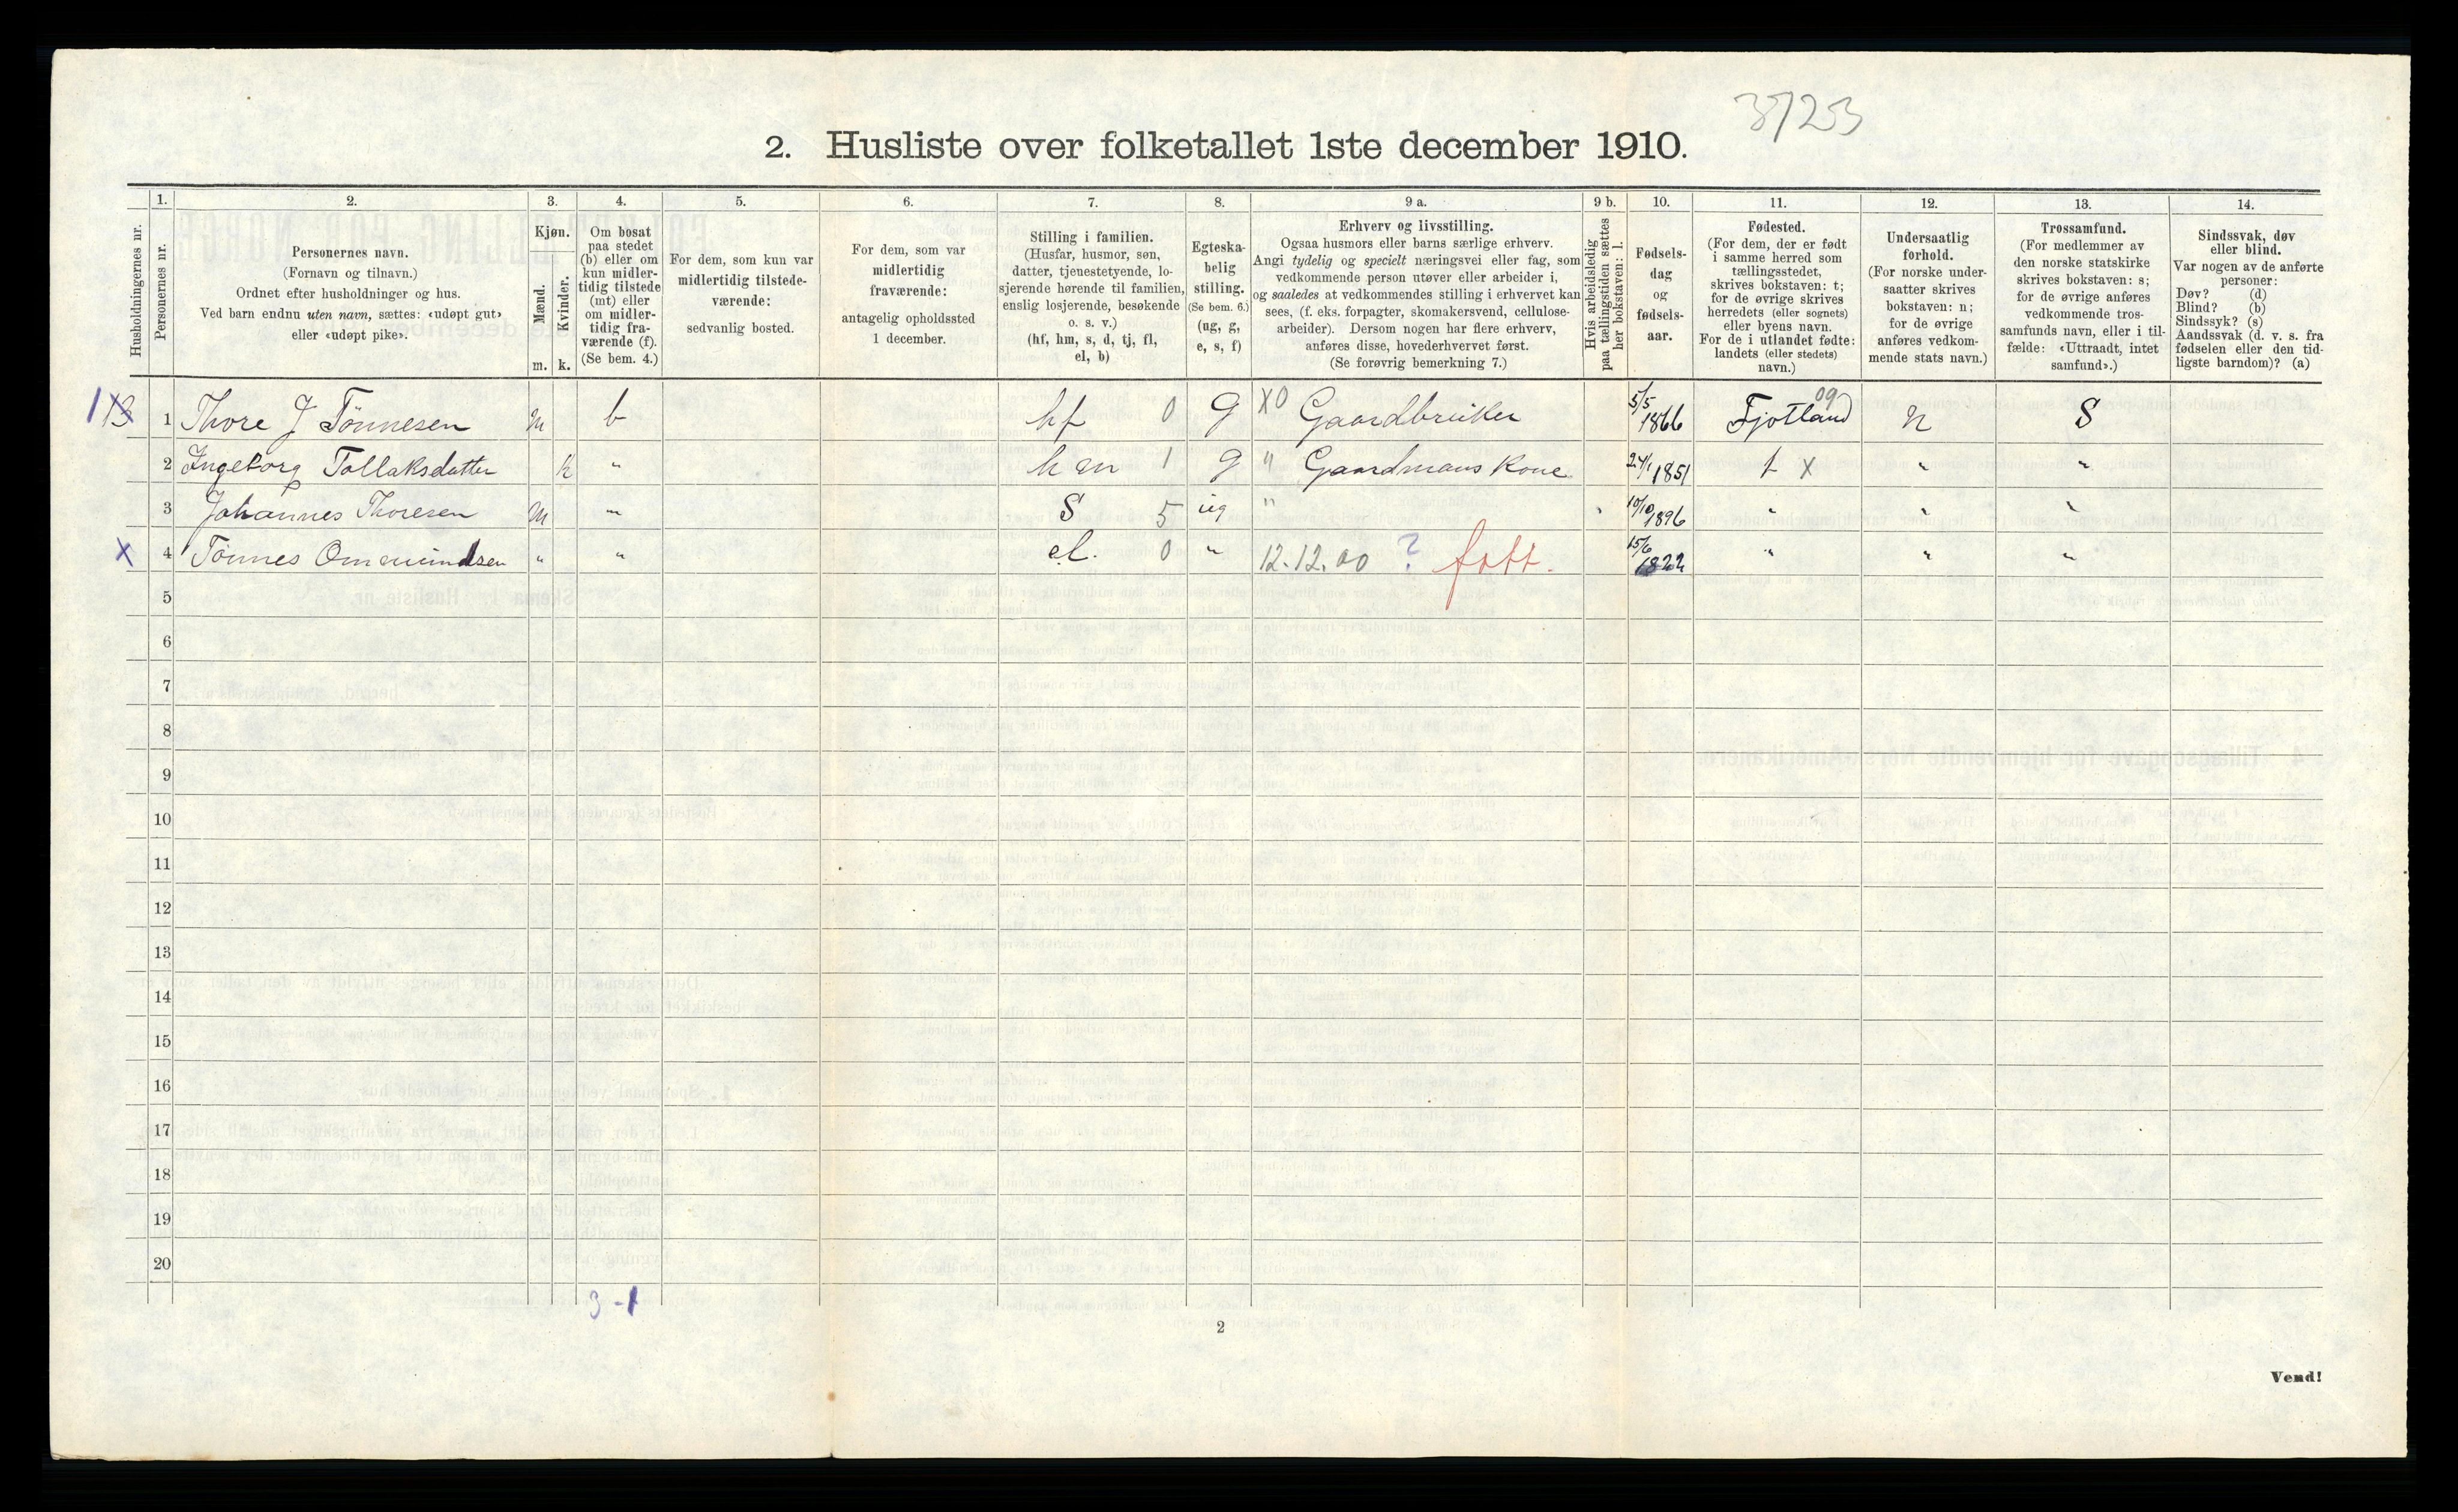 3723
2. Husliste over folketallet 1ste december 1910.
Husholdningernes nr.
1.
Personernes nr.
2.
Personernes navn.
(Fornavn og tilnavn.)
Ordnet efter husholdninger og hus.
Ved barn endnu uten navn, sættes: «udøpt gut»
eller «udøpt pike».
3.
Kjøn.
Mænd.
m.
Kvinder.
k.
4.
Om bosat
paa stedet
(b) eller om
kun midler-
tidig tilstede
(mt) eller
om midler-
tidig fra-
værende (f).
(Se bem. 4.)
5.
For dem, som kun var
midlertidig tilstede-
værende:
sedvanlig bosted.
6.
For dem, som var
midlertidig
fraværende:
antagelig opholdssted
1 december.
7.
Stilling i familien.
(Husfar, husmor, søn,
datter, tjenestetyende, lo-
sjerende hørende til familien,
enslig losjerende, besøkende
o. s. v.)
(hf, hm, s, d, tj, fl,
el, b)
8.
Egteska-
belig
stilling.
(Se bem. 6.)
(ug, g,
e, s, f)
9 a.
Erhverv og livsstilling.
Ogsaa husmors eller barns særlige erhverv.
Angi tydelig og specielt næringsvei eller fag, som
vedkommende person utøver eller arbeider i,
og saaledes at vedkommendes stilling i erhvervet kan
sees, (f. eks. forpagter, skomakersvend, cellulose-
arbeider). Dersom nogen har flere erhverv,
anføres disse, hovederhvervet først.
(Se forøvrig bemerkning 7.)
9 b.
Hvis arbeidsledig
paa tællingstiden sættes
her bokstaven: l.
10.
Fødsels-
dag
og
fødsels-
aar.
11.
Fødested.
(For dem, der er født
i samme herred som
tællingsstedet,
skrives bokstaven: t;
for de øvrige skrives
herredets (eller sognets)
eller byens navn.
For de i utlandet fødte:
landets (eller stedets)
navn.)
12.
Undersaatlig
forhold.
(For norske under-
saatter skrives
bokstaven: n;
for de øvrige
anføres vedkom-
mende stats navn.)
13.
Trossamfund.
(For medlemmer av
den norske statskirke
skrives bokstaven: s;
for de øvrige anføres
vedkommende tros-
samfunds navn, eller i til-
fælde: «Uttraadt, intet
samfund».)
14.
Sindssvak, døv
eller blind.
Var nogen av de anførte
personer:
Døv? (d)
Blind? (b)
Sindssyk? (s)
Aandssvak (d. v. s. fra
fødselen eller den tid-
ligste barndom)? (a)
1 Thore J Tönnesen m b hf 0 g X0 Gaardbruker 5/5 1866 Fjotland 09 n S
2 Ingeborg Tollaksdatter k " hm 1 g " Gaardmans Kone 24/1 1851 t X " "
3 Johannes Thoresen m " S 5 ug " 10/10 1896 " " "
X 4 Tönnes Ommundsen " " el. 0 " 12.12.00 ? fatt. 15/6 1822 " " "
5
6
7
8
9
10
11
12
13
14
15
16
17
18
19
20
3 - 1
2
Vend!